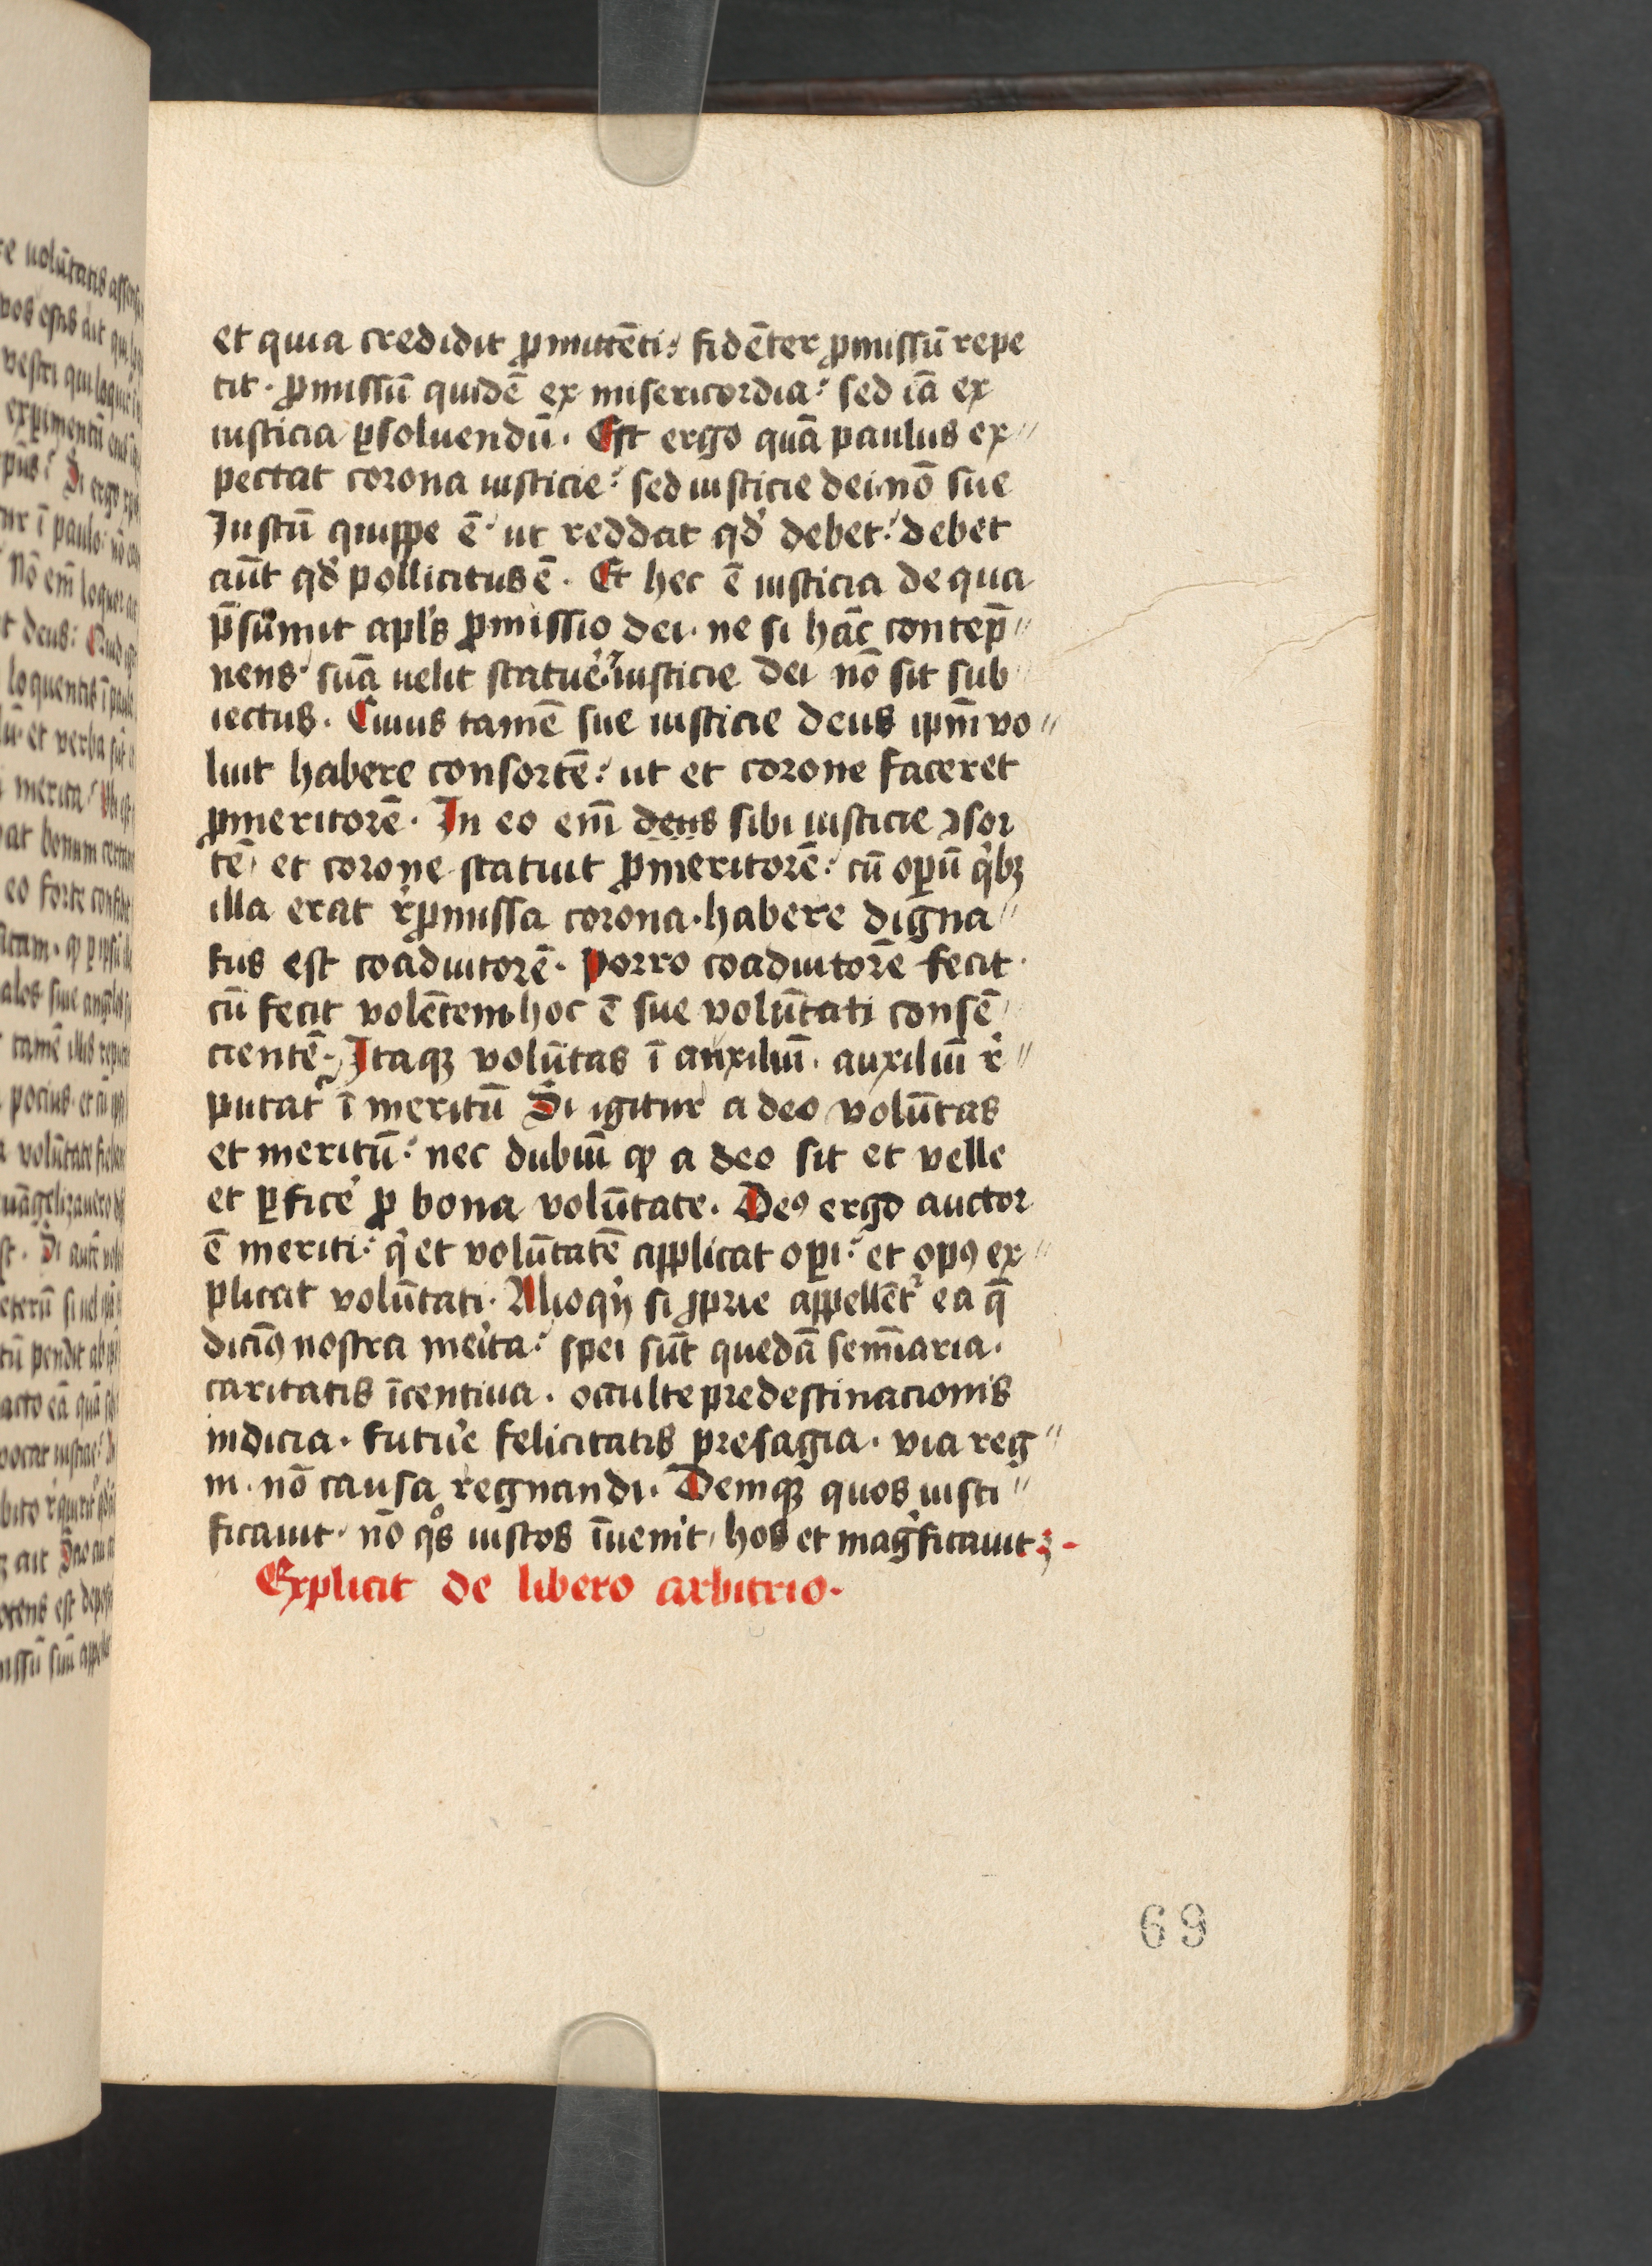 et quia credidit ꝓmittēti: fidēter ꝓmissū repe
tit · ꝓmissū quidē ex misericordia: sed iā ex
iusticia ꝑsoluendū · Est ergo quā paulus ex//
pectat corona iusticie: sed iusticie dei nō sue
Justū quippe ē ut reddat qd̓ debet: debet
aūt qd̓ pollicitus ē · Et hec ē iusticia de qua
p̄sūmit apl̓s ꝓmissio dei · ne si hāc contep̄//
nens suā uelit statue̓ · iusticie dei nō sit sub
iectus · Cuius tamē sue iusticie deus ip̄m vo//
luit habere consortē: ut et corone faceret
ꝓmeritorē · In eo em̄ deus sibi iusticie ↄsor
tē et corone statuit ꝓmeritorē: cū oꝑū q̓bꝫ
illa erat r̓ꝓmissa corona · habere digna//
tus est coadiutorē · Porro coadiutorē fecit ·
cū fecit volētem · hoc ē sue volūtati consē
cientē · Itaqꝫ volūtas ī auxiliū · auxiliū r̓//
putat᷑ ī meritū Si igitur a deo volūtas
et meritū: nec dubiū ꝙ a deo sit et velle
et ꝑfice̓ ꝓ bona volūtate · Deꝰ ergo auctor
ē meriti: q̓ et volūtatē applicat oꝑi: et opꝰ ex//
plicat volūtati · Alioq̓n si ꝓprie appellēt᷑ ea q̄
dicimꝰ nostra me̓ita: spei sūt quedā semīaria ·
caritatis īcentiua · occulte predestinacionis
indicia · futu̓e felicitatis presagia · via reg//
ni · nō causa regnandi · Deniqꝫ quos iusti//
ficauit · nō qͦs iustos īuenit · hos et mag̓ficauit ·
Explicit de libero arbitrio ·
69